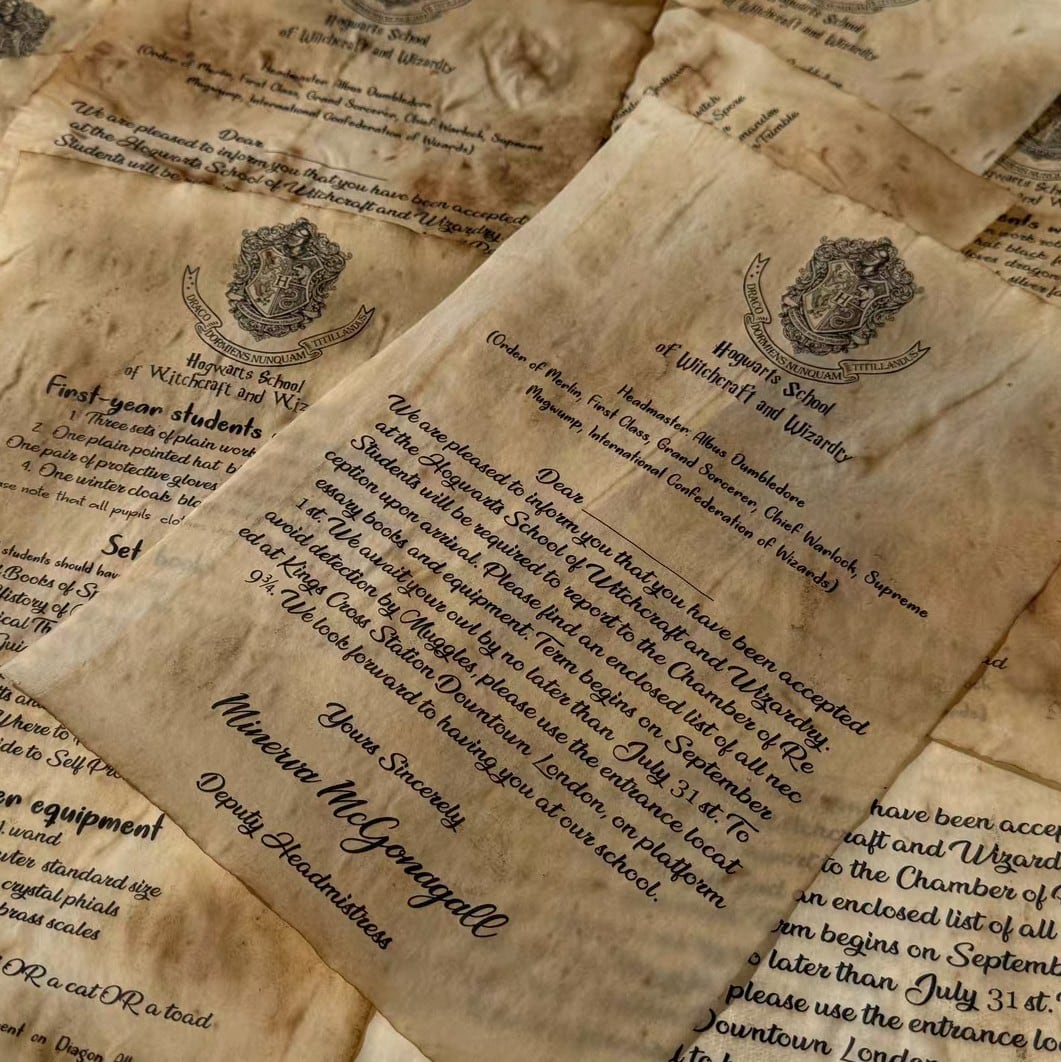 Hogwarts School
of Witchcraft and Wizardry
Headmaster Albus Dumbledore
(Order of Merlin, First Class, Grand Sorcerer, Chief Warlock, Supreme
Mugwump, International Confederation of Wizards)
Dear
We are pleased to inform you that you have been accepted
at the Hogwarts School of Witchcraft and Wizardry.
Students will be
DRACO DORMIENS NUNQUAM TITILLANDUS
Hogwarts School
of Witchcraft and Wiz
First-year students
1. Three sets of plain work
2. One plain pointed hat b
One pair of protective gloves
4. One winter cloak blac
ase note that all pupils clot
Set
students should hav
Books of S
History of
ical Th
Gui
Where to
ide to Self Pro
er equipment
1. wand
wter standard size
crystal phials
brass scales
OR a cat OR a toad
ent on Diagon All
DRACO DORMIENS NUNQUAM TITILLANDUS
Hogwarts School
of Witchcraft and Wizardry
Headmaster Albus Dumbledore
(Order of Merlin, First Class, Grand Sorcerer, Chief Warlock, Supreme
Mugwump, International Confederation of Wizards)
Dear
We are pleased to inform you that you have been accepted
at the Hogwarts School of Witchcraft and Wizardry.
Students will be required to report to the Chamber of Re
ception upon arrival. Please find an enclosed list of all nec
essary books and equipment. Term begins on September
1 st. We await your owl by no later than July 31 st. To
avoid detection by Muggles, please use the entrance locat
ed at Kings Cross Station Downtown London, on platform
9¾. We look forward to having you at our school.
Yours Sincerely
Minerva McGonagall
Deputy Headmistress
Hogwarts School
of Witchcraft and Wizardry
have been accep
raft and Wizard
to the Chamber of
an enclosed list of all
rm begins on Septemb
o later than July 31 st.
please use the entrance lo
Downtown London